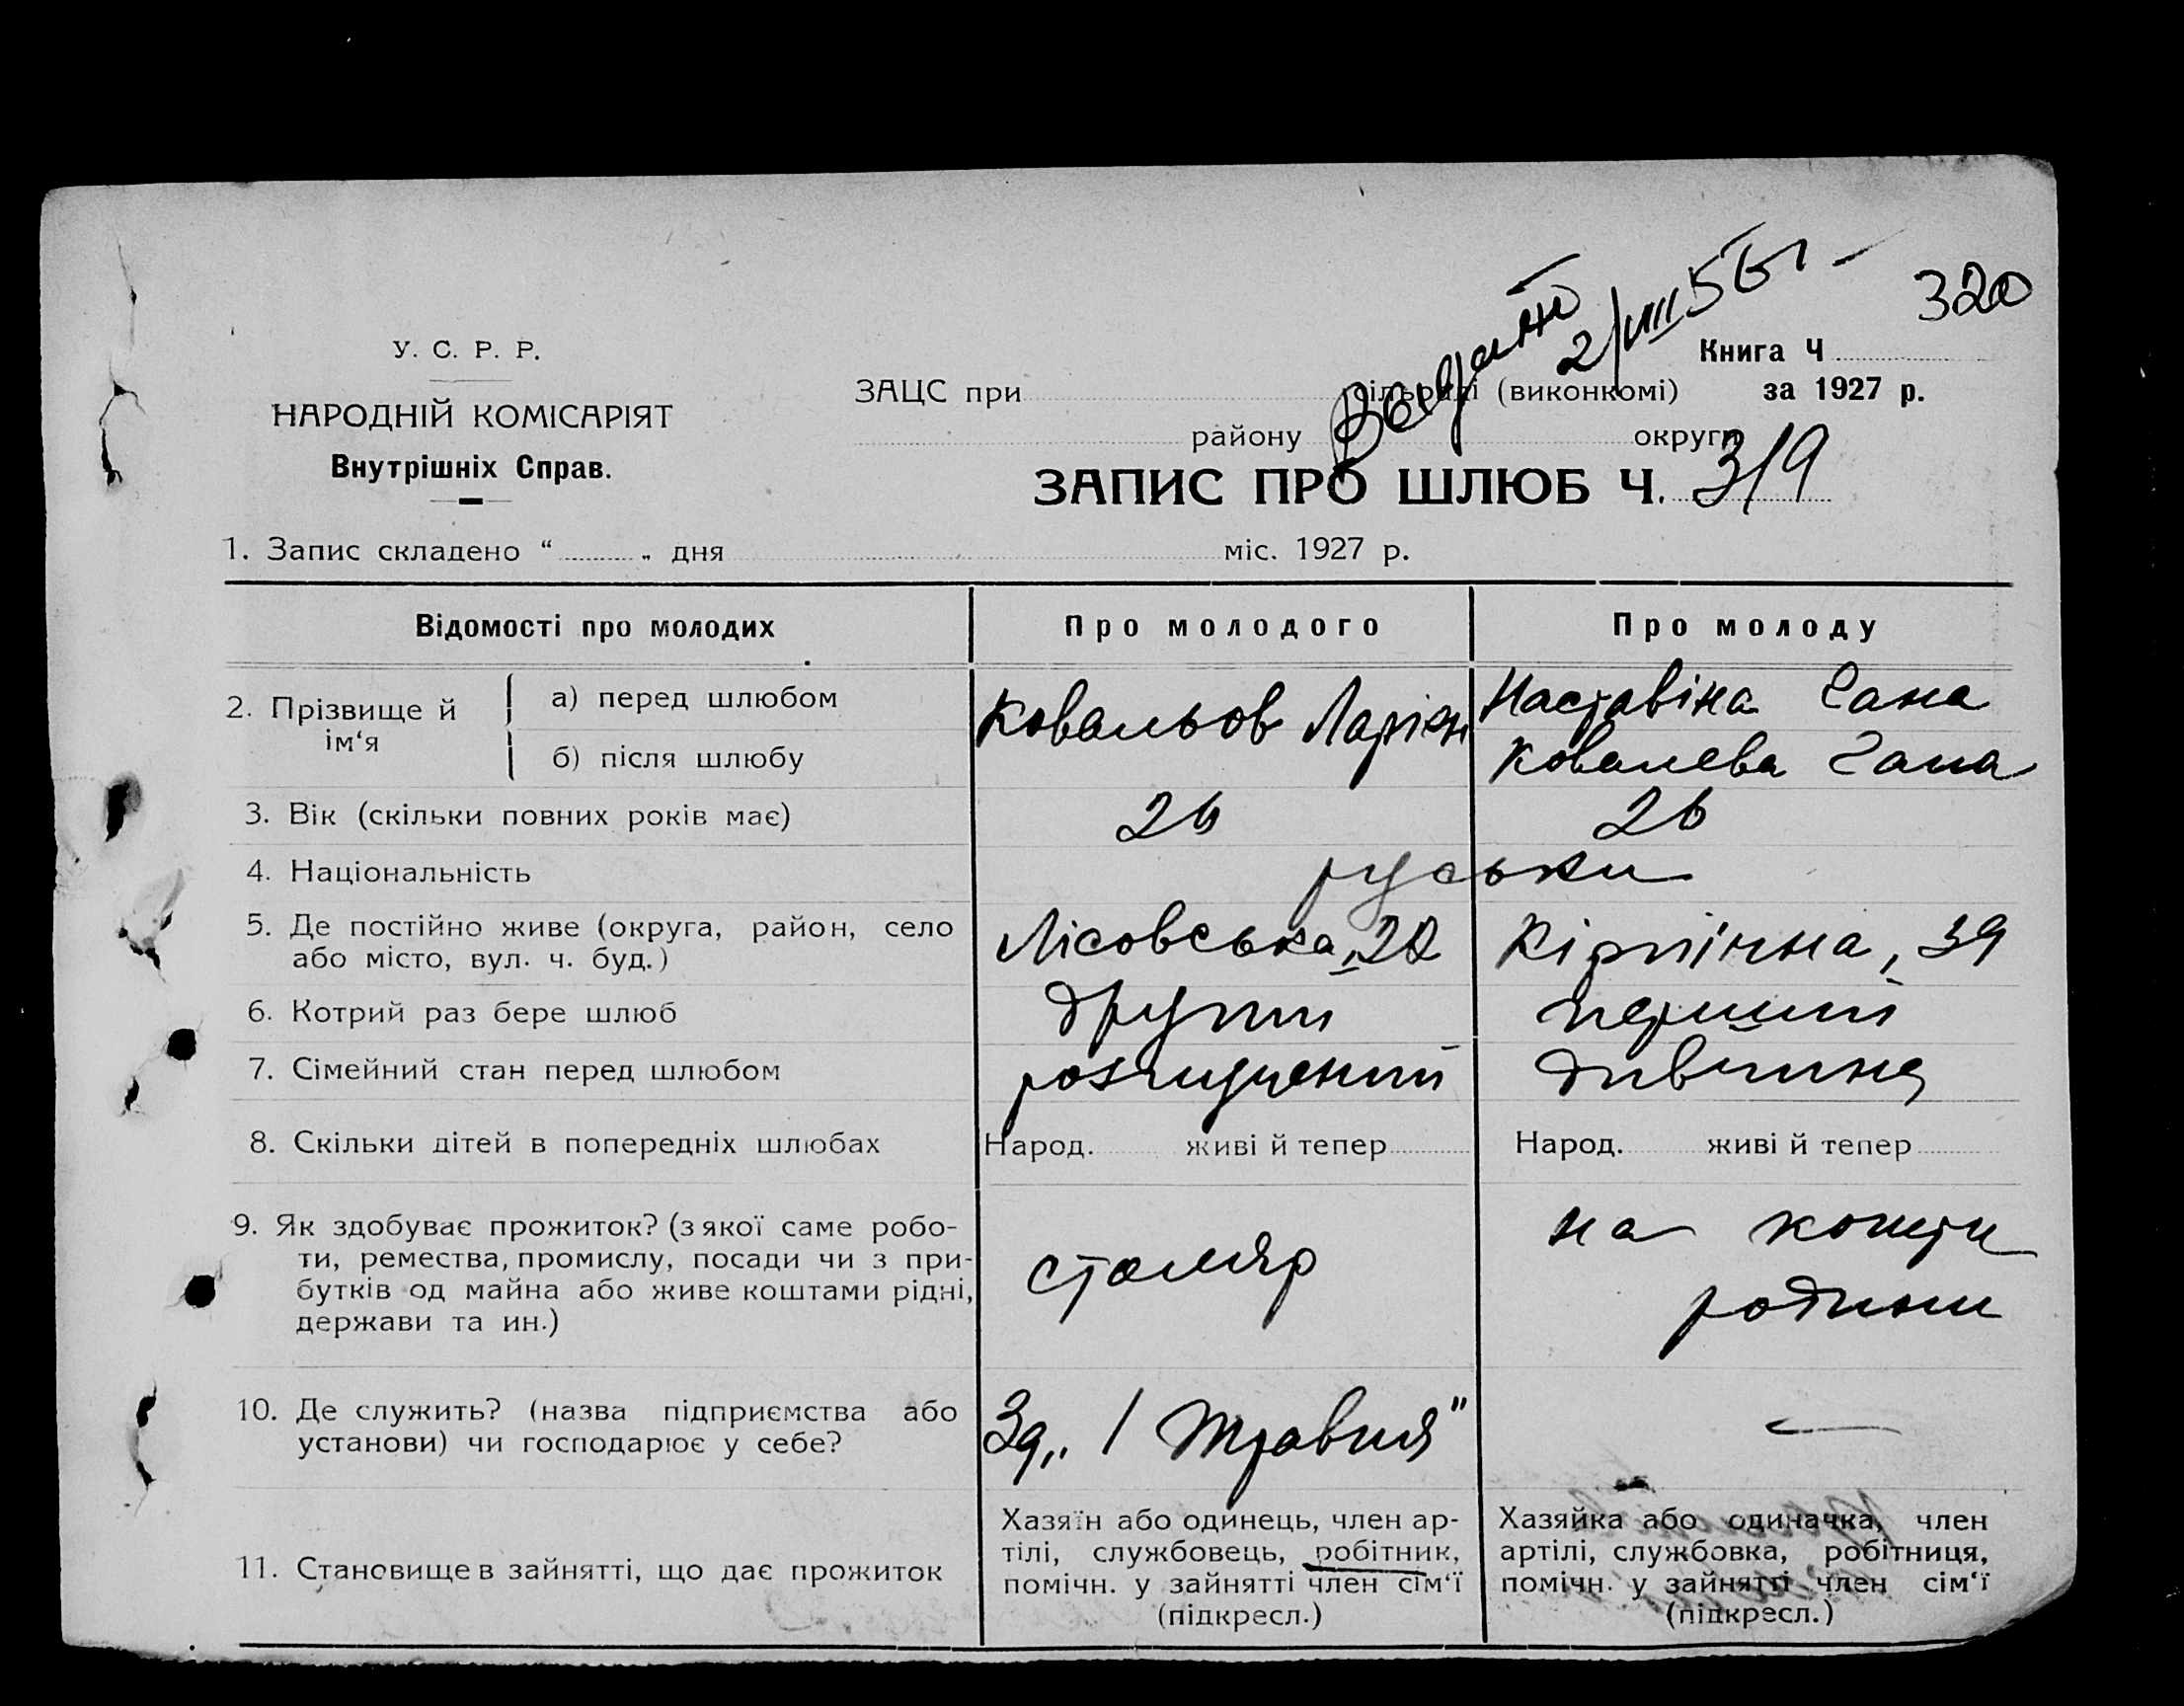 320
Выдано
2/VIII 56 г
У. С. Р. Р.
НАРОДНІЙ КОМІСАРІЯТ
Внутрішніх Справ.
Книга Ч
за 1927 р.
ЗАЦС при сільраді (виконкомі)
району округи
ЗАПИС ПРО ШЛЮБ Ч. 319
1. Запис складено “ „ дня міс. 1927 р.
Відомості про молодих Про молодого Про молоду
2. Прізвище й ім‘я
а) перед шлюбом Ковальов Ларіон Наставіна Гана
б) після шлюбу Ковалева Гана
3. Вік (скільки повних років має) 26 26
4. Національність руськи
5. Де постійно живе (округа, район, село
або місто, вул. ч. буд.) Лісовська, 22 Кірпічна, 39
6. Котрий раз бере шлюб другий перший
7. Сімейний стан перед шлюбом розлучений дивчина
8. Скільки дітей в попередніх шлюбах Народ. живі й тепер Народ. живі й тепер
9. Як здобуває прожиток? (з якої саме робо-
ти, ремества, промислу, посади чи з при-
бутків од майна або живе коштами рідні,
держави та ин.)
столяр
на кошти
родини
10. Де служить? (назва підприємства або
установи) чи господарює у себе?
Зд „1 Травня”
11. Становище в зайнятті, що дає прожиток
Хазяїн або одинець, член ар-
тілі, службовець, робітник,
помічн. у зайнятті член сім‘ї
(підкресл.)
Хазяйка або одиначка, член
артілі, службовка, робітниця,
помічн. у зайнятті член сім‘ї
(підкресл.)